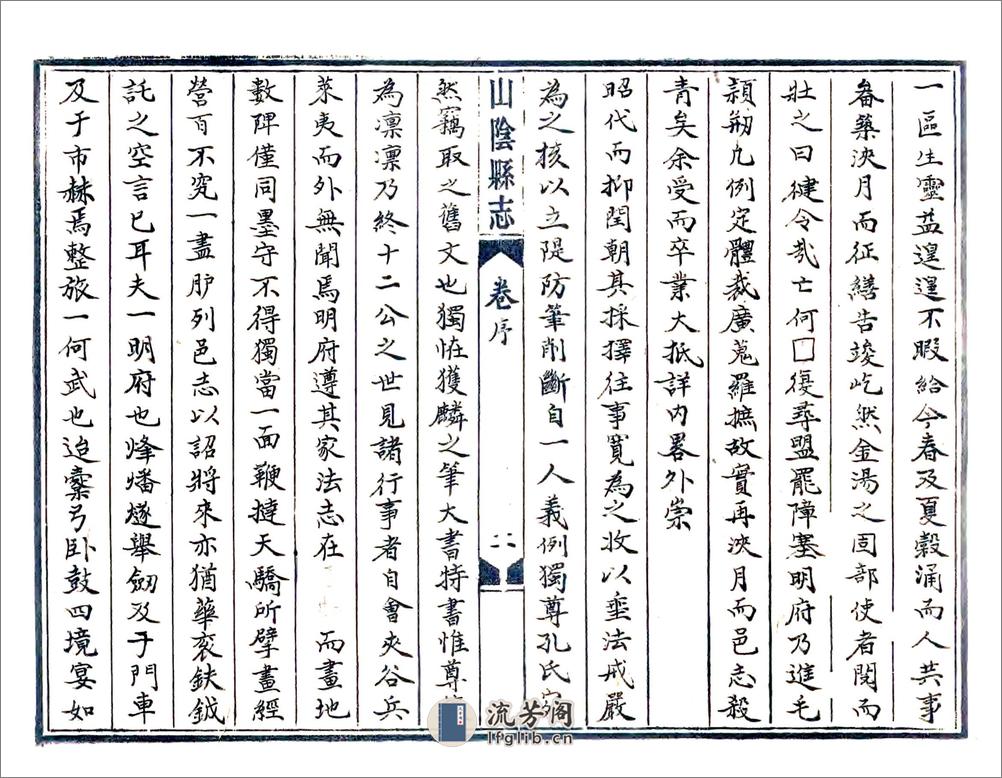 一區生靈益遑遑不暇給今春及夏穀涌而人共事
畚築浹月而征繕告竣屹然金湯之固部使者閱而
壯之曰健令哉亡何□復尋盟罷障塞明府乃進毛
穎剏凡例定體裁廣蒐羅摭故實再浹月而邑志殺
青矣余受而卒業大抵詳內畧外崇
昭代而抑閏朝其採擇往事寬為之收以垂法戒嚴
為之核以立隄防筆削斷自一人義例獨尊孔氏
山陰縣志 卷序 二
然竊取之舊文也獨恠獲麟之筆大書特書惟尊
為凛凛乃終十二公之世見諸行事者自會夾谷兵
萊夷而外無聞焉明府遵其家法志在 而畫地
數陴僅同墨守不得獨當一面鞭撻天驕所擘畫經
營百不究一盡臚列邑志以詔將來亦猶華衮鈇鉞
託之空言已耳夫一明府也烽燔燧舉劒及于門車
及于市赫焉整旅一何武也迨櫜弓卧鼓四境宴如
流芳阁
lfglib.cn